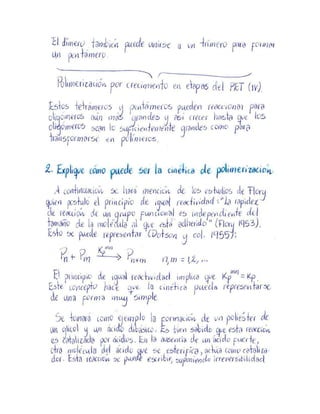 El dímero también puede unirse a un trímero para formar
un pentámero.
Polimerización por crecimiento en etapas del PET (IV)
Estos tetrámeros y pentámeros pueden reaccionar para
oligómeros aún más grandes y así crecer hasta que los
oligómeros sean lo suficientemente grandes como para
transformarse en polímeros.
2. Explique cómo puede ser la cinética de polimerización
A continuación se hará mención de los estudios de Flory
quien postuló el principio de igual reactividad: "La rapidez
de reacción de un grupo funcional es independiente del
tamaño de la molécula al que está adherido" (Flory 1953).
Esto se puede representar (Dotson y col. 1955):
Pn + Pm Kpnm Pn+m n,m = 1,2,...
El principio de igual reactividad implica que Kpnm = Kp
Este concepto hace que la cinética pueda representarse
de una forma muy simple
Se tomará como ejemplo la formación de un poliéster de
un glicol y un ácido dibásico. Es bien sabido que esta reacción
es catalizada por ácidos. En la ausencia de un ácido fuerte,
otra molécula del ácido que se esterifica, actúa como cataliza-
dor. Esta reacción se puede escribir, suponiendo irreversibilidad